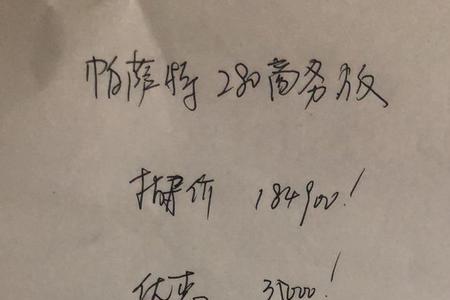 帕萨特 280商务版
指导价 184900！
优惠 35000！